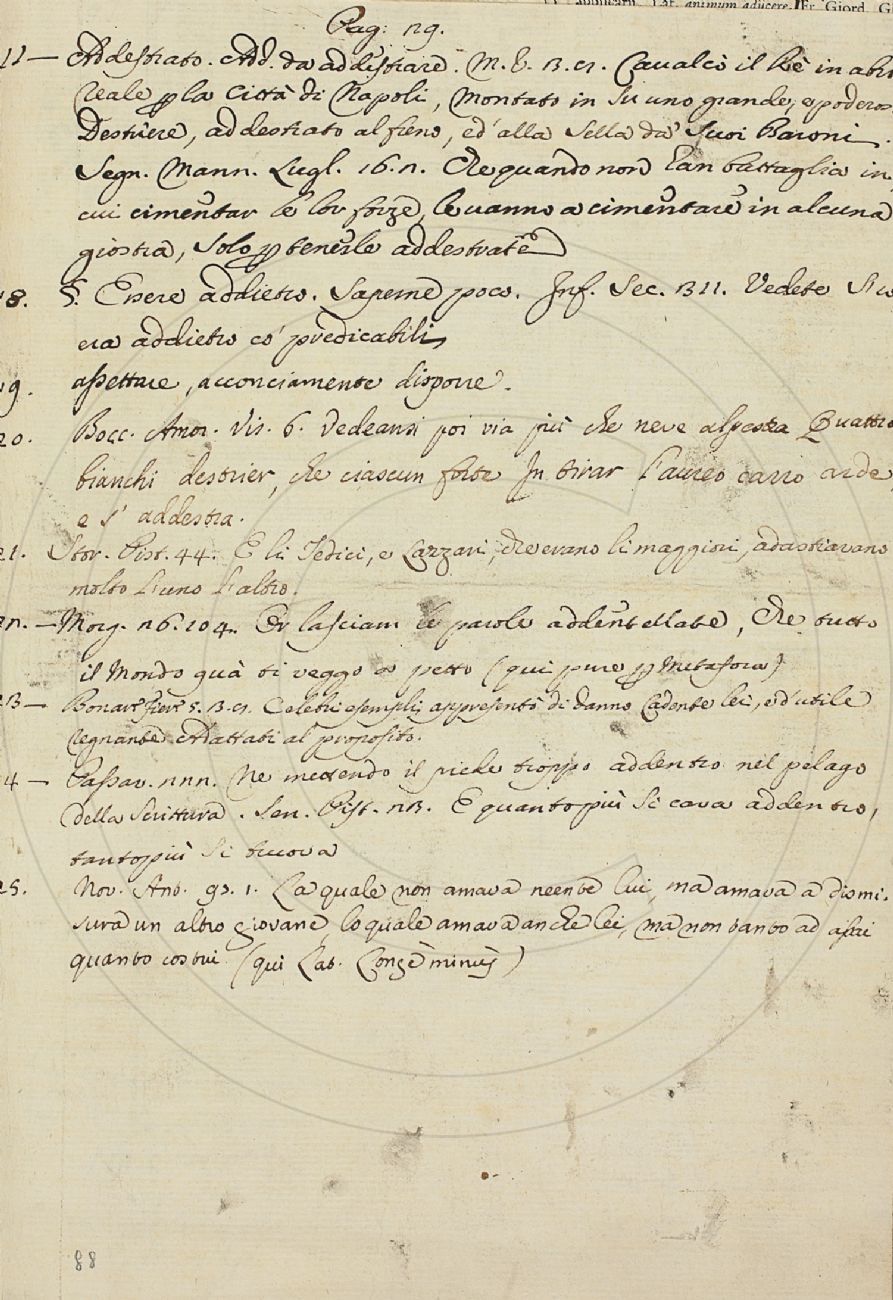 animum adiicere. Fr. Giord.
Pag: 29.
11 — Addestrato. Add. da addestrare. M. V. 3. 21. Cavalcò il Rè in abito
reale p la Città di Napoli, montato in su uno grande, e poderoso
Destriere, addestrato al freno, ed' alla sella da' suoi Baroni.
Segn. Mann. Lugl. 16. 2. Che quando non fan battaglia in
cui cimentar le lor forze, le vanno a cimentare in alcuna
giostra, solo p tenerle addestrate
18. §. Essere addietro. Saperne poco. Inf. Sec. 311. Vedete s'io
era addietro co' predicabili
19. assettare, acconciamente disporre.
20. Bocc. Amor. Vis. 6. Vedeansi poi via più che neve alpestra Quattro
bianchi destrier, che ciascun forte In tirar l'aureo carro arde
e s' addestra.
21. Stor. Pist. 44. E li Tedici, e Lazzari, che erano li maggiori, adastiavano
molto l'uno l'altro.
22. — Morg. 26. 104. Or lasciam le parole addentellate, Che tutto
il Mondo quà ti veggo a petto (qui pure p Metafora)
23 — Bonar. Fier. 5. 3. 2. Celebri esempli appresentò di danno Cadente lei, e d'utile
regnante Adattati al proposito.
24 — Passav. 222. Ne mettendo il piede troppo addentro nel pelago
della Scrittura. Sen. Pist. 23. E quanto più si cava addentro,
tanto più si truova
25. Nov. Ant. 93. 1. La quale non amava neente lui, ma amava a dismi.
sura un altro giovane, lo quale amava anche lei, ma non tanto ad assai
quanto costui (qui Lat. Longè minus)
88